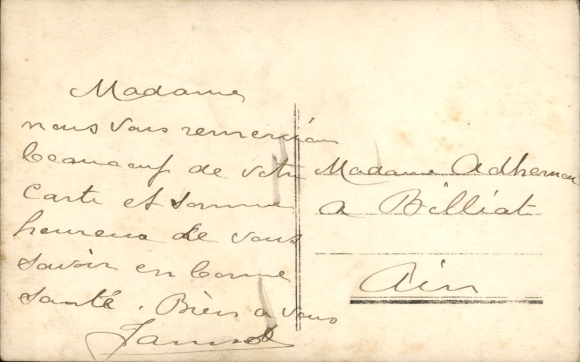 Madame
nous vous remercion
beaucoup de votre
carte et somme
heureux de vous
savoir en bonne
santé. Bien a vous
Madame Adhemar
a Billiat
Ain